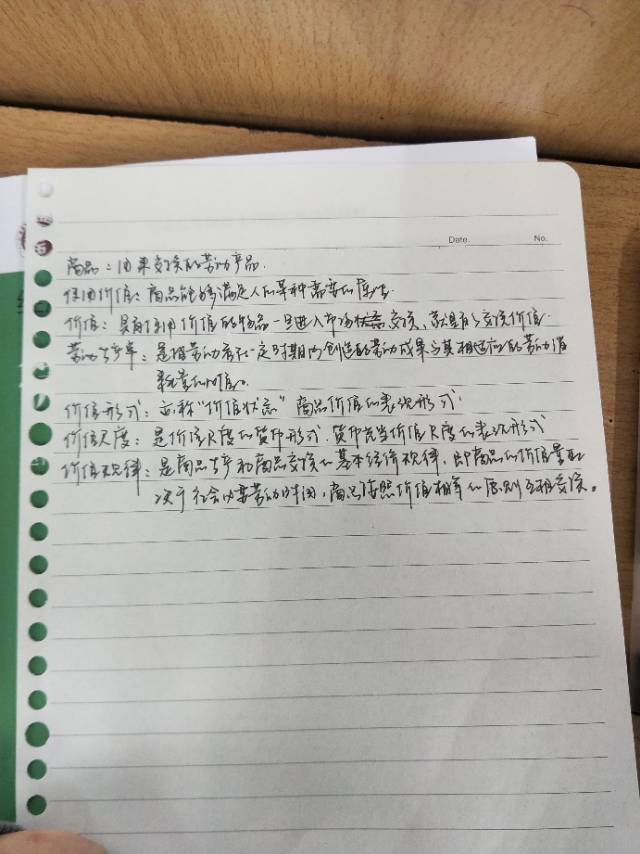 Date.    No.
商品：用来交换的劳动产品.
使用价值：商品能够满足人们某种需要的属性
价值：具有使用价值的物品一旦进入市场交换，就具有了交换价值.
劳动生产率：是指劳动者在一定时期内创造的劳动成果与其相适应的劳动消
耗量的比值。
价值形式：亦称“价值状态”商品价值的表现形式.
价值尺度：是价值尺度的货币形式.货币充当价值尺度的表现形式
价值规律：是商品生产和商品交换的基本经济规律，即商品的价值量取
决于社会必要劳动时间，商品按照价值相等的原则互相交换。